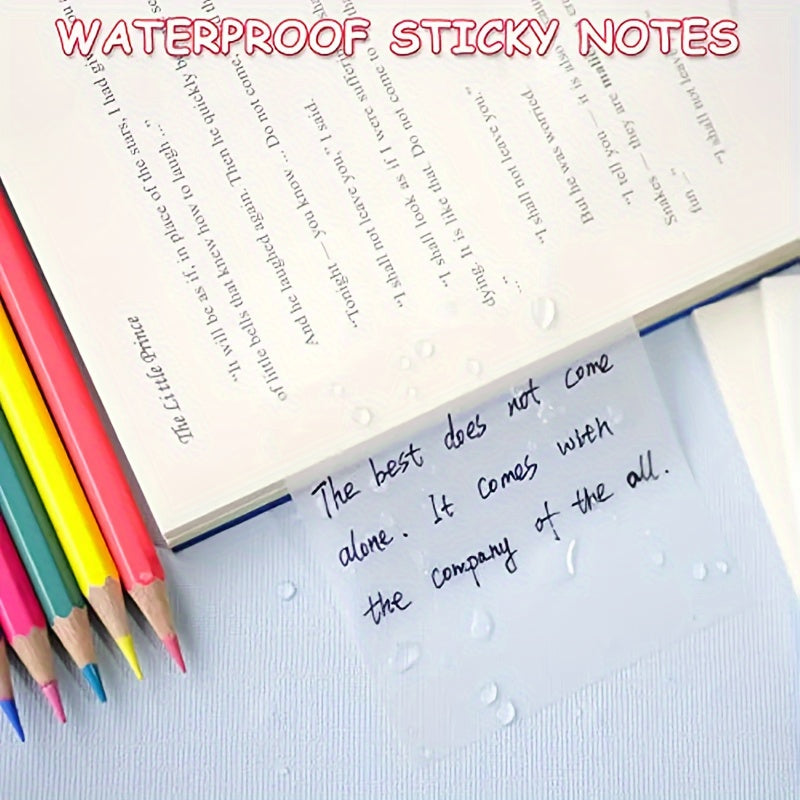 WATERPROOF STICKY NOTES
The Little Prince
"It will be as if, in place of the stars, I had giv
of little bells that knew how to laugh ..."
And he laughed again. Then he quickly be
"Tonight — you know ... Do not come,
"I shall not leave you," I said.
"I shall look as if I were sufferin
dying. It is like that. Do not come to th
..."
"I shall not leave you."
But he was worried.
"I tell you — it is also
Snakes — they are mali
fun ..."
"I shall not leave
The best does not come
alone. It comes with
the company of the all.